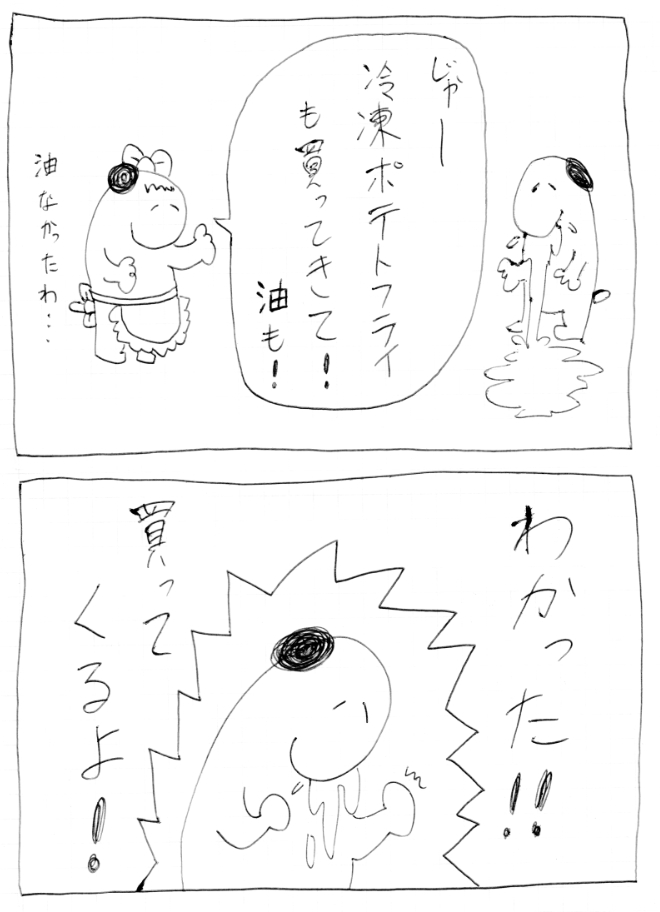 じゃー
冷凍ポテトフライ
も買ってきて!
油も!
油なかったわ...
わかった!!
買って
くるよ!